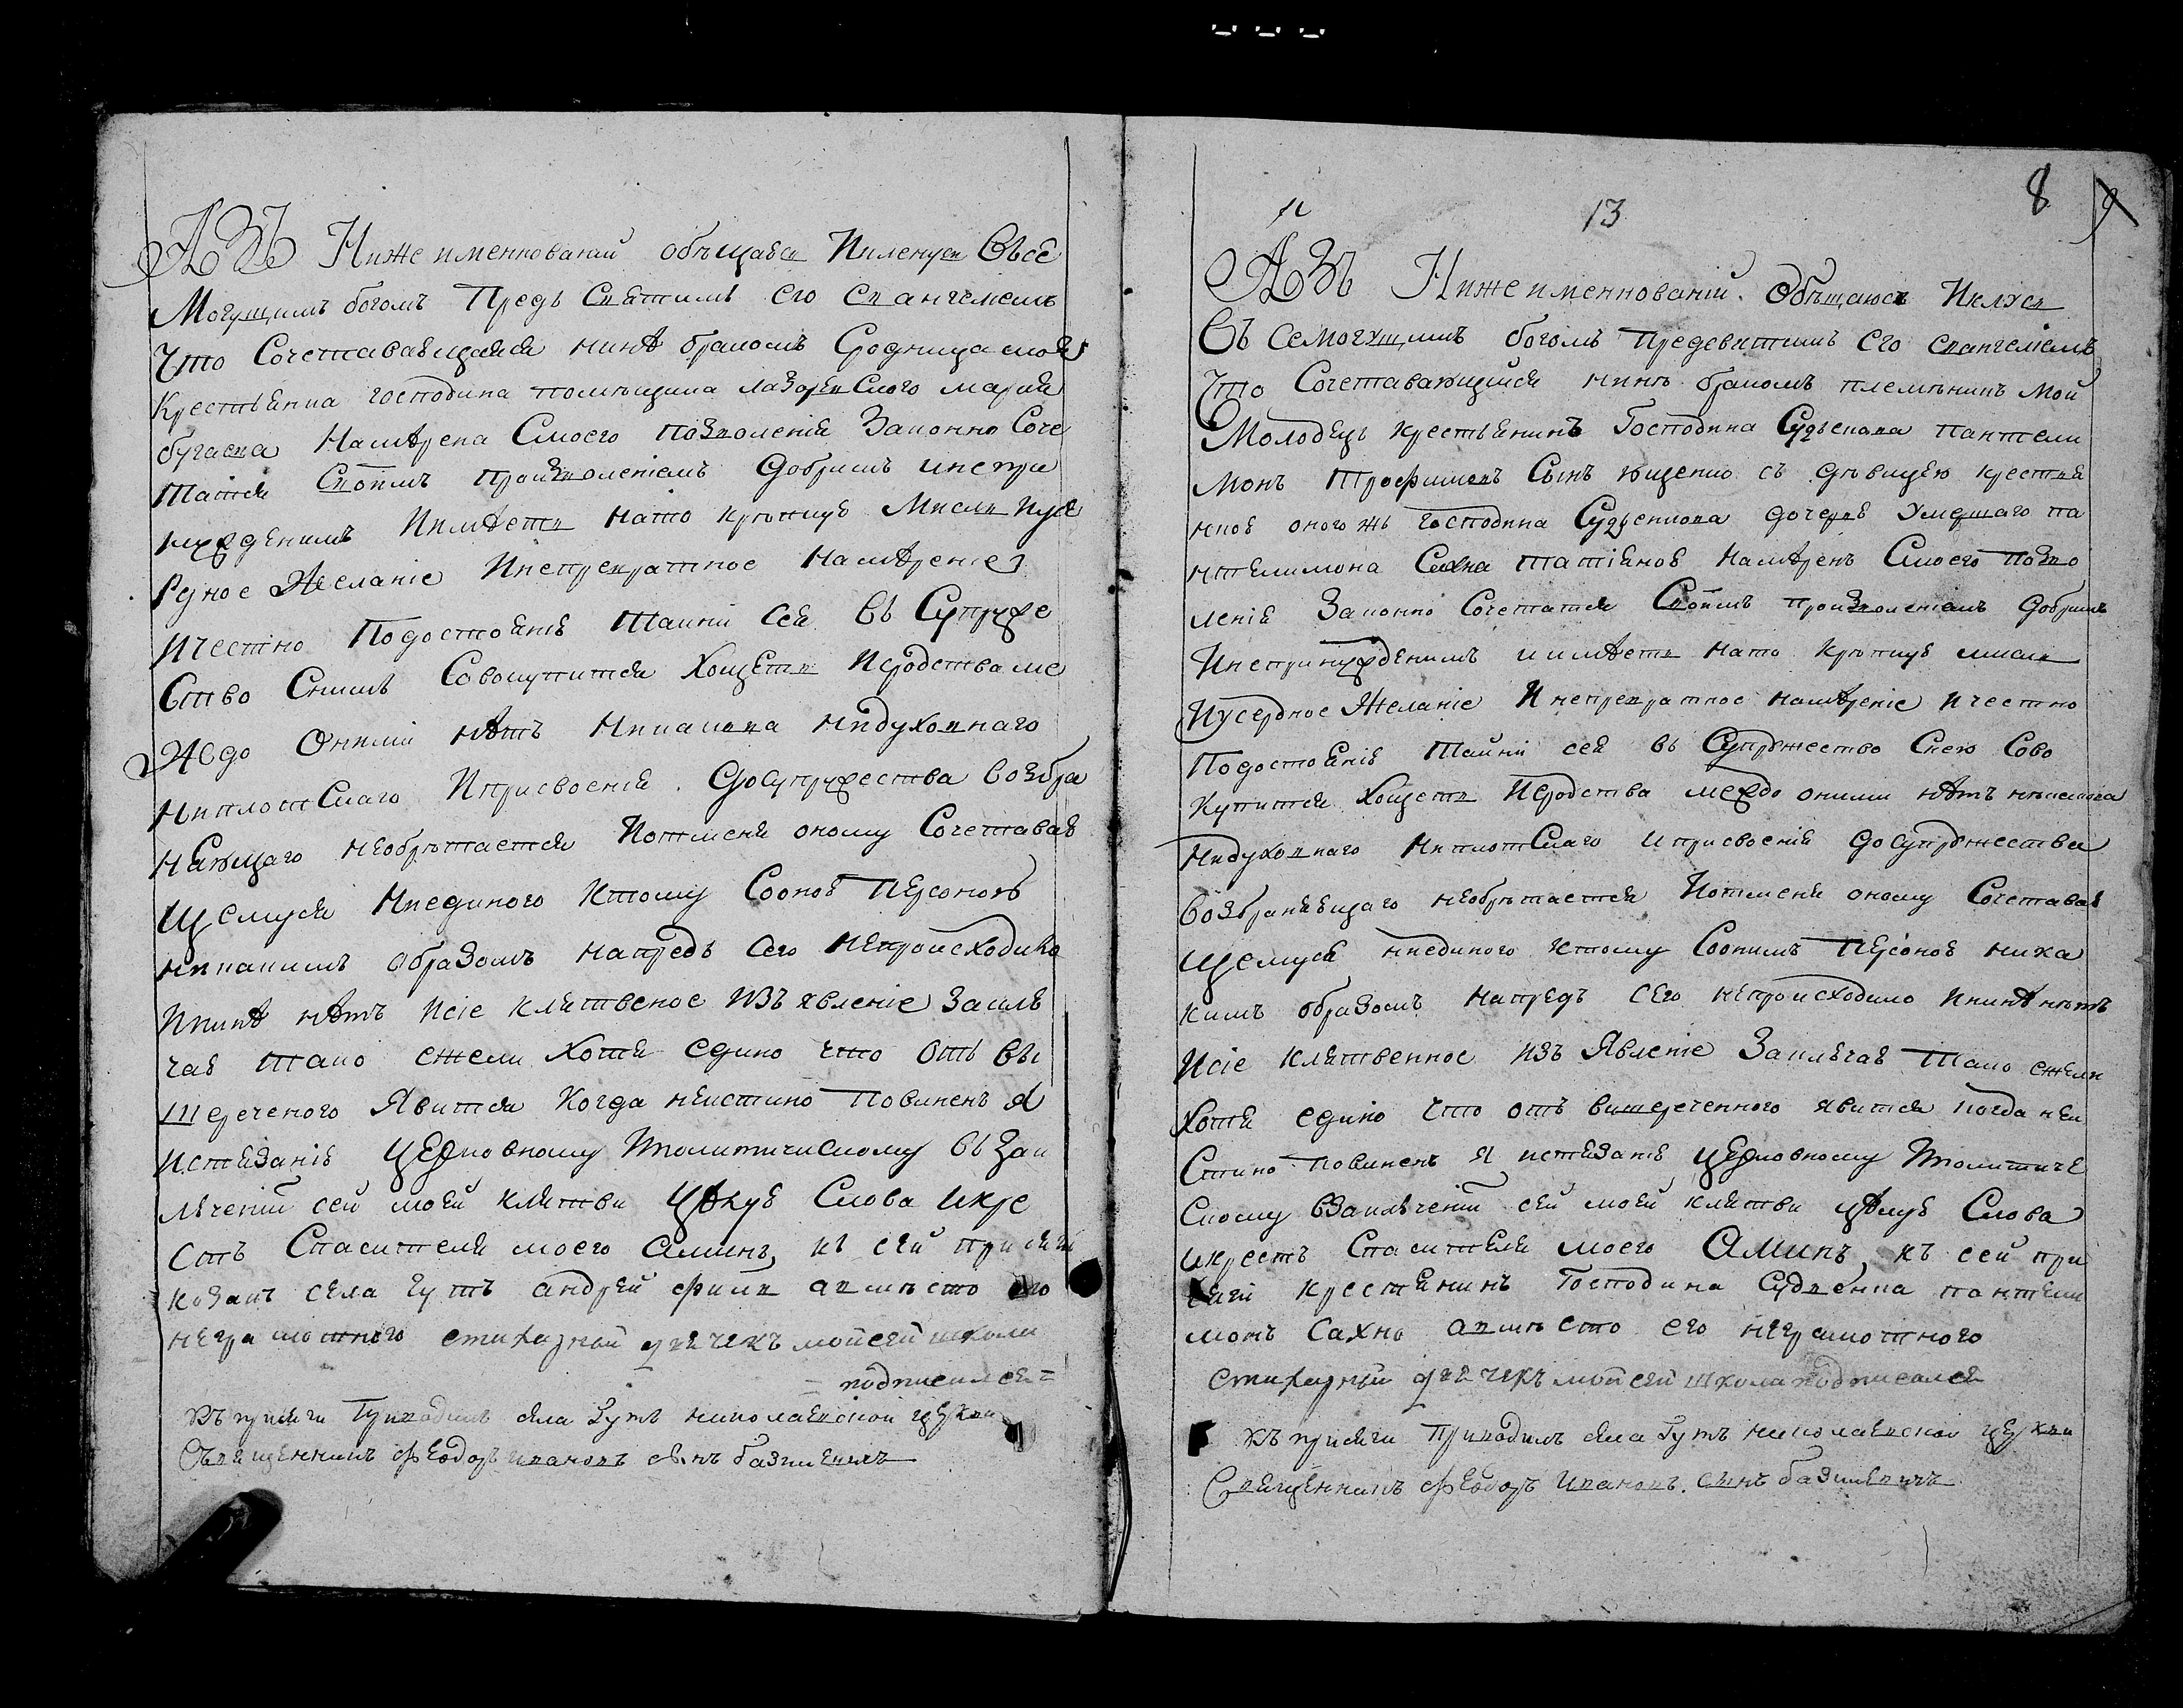 АЗЪ Нижеименнованій обѣщаюся Икленуся Всѣ
Могущимъ богомъ Предъ Святимъ его Евангелиемъ
Что Сочетаваяющаяся нинѣ бракомъ Сродница моя
крестьянка господина помѣщика лазаревского мария
бугаева Намѣрена Смоего позволенія Законно Соче
татся Своимъ произволениемъ добримъ инепри
нужденимъ Иимѣетъ Нато крѣпкую Мисль Иусе
рдное Желаніе Инепревратное Намѣреніе
Ичестно Подостоянію Таини сея Въ Супруже
Ство Снимъ Совокупитися Хощетъ Исродства ме
Ждо Оними нѣтъ Никакова нидуховнаго
Ниплотскаго Иприсвоенія. Досупружества возбра
няющаго необрѣтается Иотменя оному Сочетаваю
щемуся Ниединого Ктому Соонои Персоною
никакимъ образомъ напредъ сего непроисходило
Ининѣ нѣтъ Исіе клятвеное изъявление Заклю
чаю тако ежели хотя едино что отъ ви
шереченого Явится когда неистино повиненъ я
истязанію церковному Иполитическому Взак
лючении сей моей клятви Цѣлую Слова икре
стъ Спасителя моего Аминь къ сей присяги
козакъ села гутъ андрей филь авмѣсто его
неграмотного стихарный дячекъ мойсей школи
= подписался =
къ присяги Приводилъ села Гутъ николаевской церкви
Священникъ Феодоръ Ивановъ синъ базилевичъ
11 13 8 9
АЗЪ Нижеименнованій. Обѣщаюся Иклуся
Въ семогущимъ богомъ предсвятимъ Его евангелиемъ
Что Сочетавающийся нинѣ бракомъ племѣникъ мой
Молодецъ крестьянинъ Господина Судъенкова пантели
монъ Трофимовъ Сынъ ющенко съ дѣвицею крестья
нкою оного жъ господина Судъенкова дочерю Умершаго па
нтелимона Сахна татіяною Намѣренъ Смоего позво
ленія Законно Сочетатся Своимъ произволениемъ добримъ
Инепринужденимъ иимѣетъ нато крѣпкую мисль
Иусердное Желаніе Инепревратное намѣреніе Ичестно
Подостоянію Тайни сея въ Супружество Снею Сово
купитися Хощетъ Исродства между оними нѣтъ никакова
Нидуховнаго Ниплотскаго иприсвоенія досупружества
возбраняющаго необрѣтается Иотменя оному Сочетаваю
щемуся ниединого ктому Соонимъ Персоною ника
кимъ образомъ напредъ сего непроисходило Ининѣ нѣтъ
Исіе клятвенное изъ Явление Заключаю Тако ежели
хотя едино что отъ вишереченного явится когда неи
стино повиненъ я истязанію церковному Иполитиче
скому Взаключении сей моей клятви цѣлую Слова
икрестъ Спасителя моего Аминь къ сей при
сяги крестянинъ Господина Судвенка пантели
монъ Сахно авмѣсто его неграмотного
стихарный дячекъ мойсей школа подписался
къ присяги приводилъ села Гутъ николаевской церкви
Священникъ Феодоръ Ивановъ. синъ базилевичъ